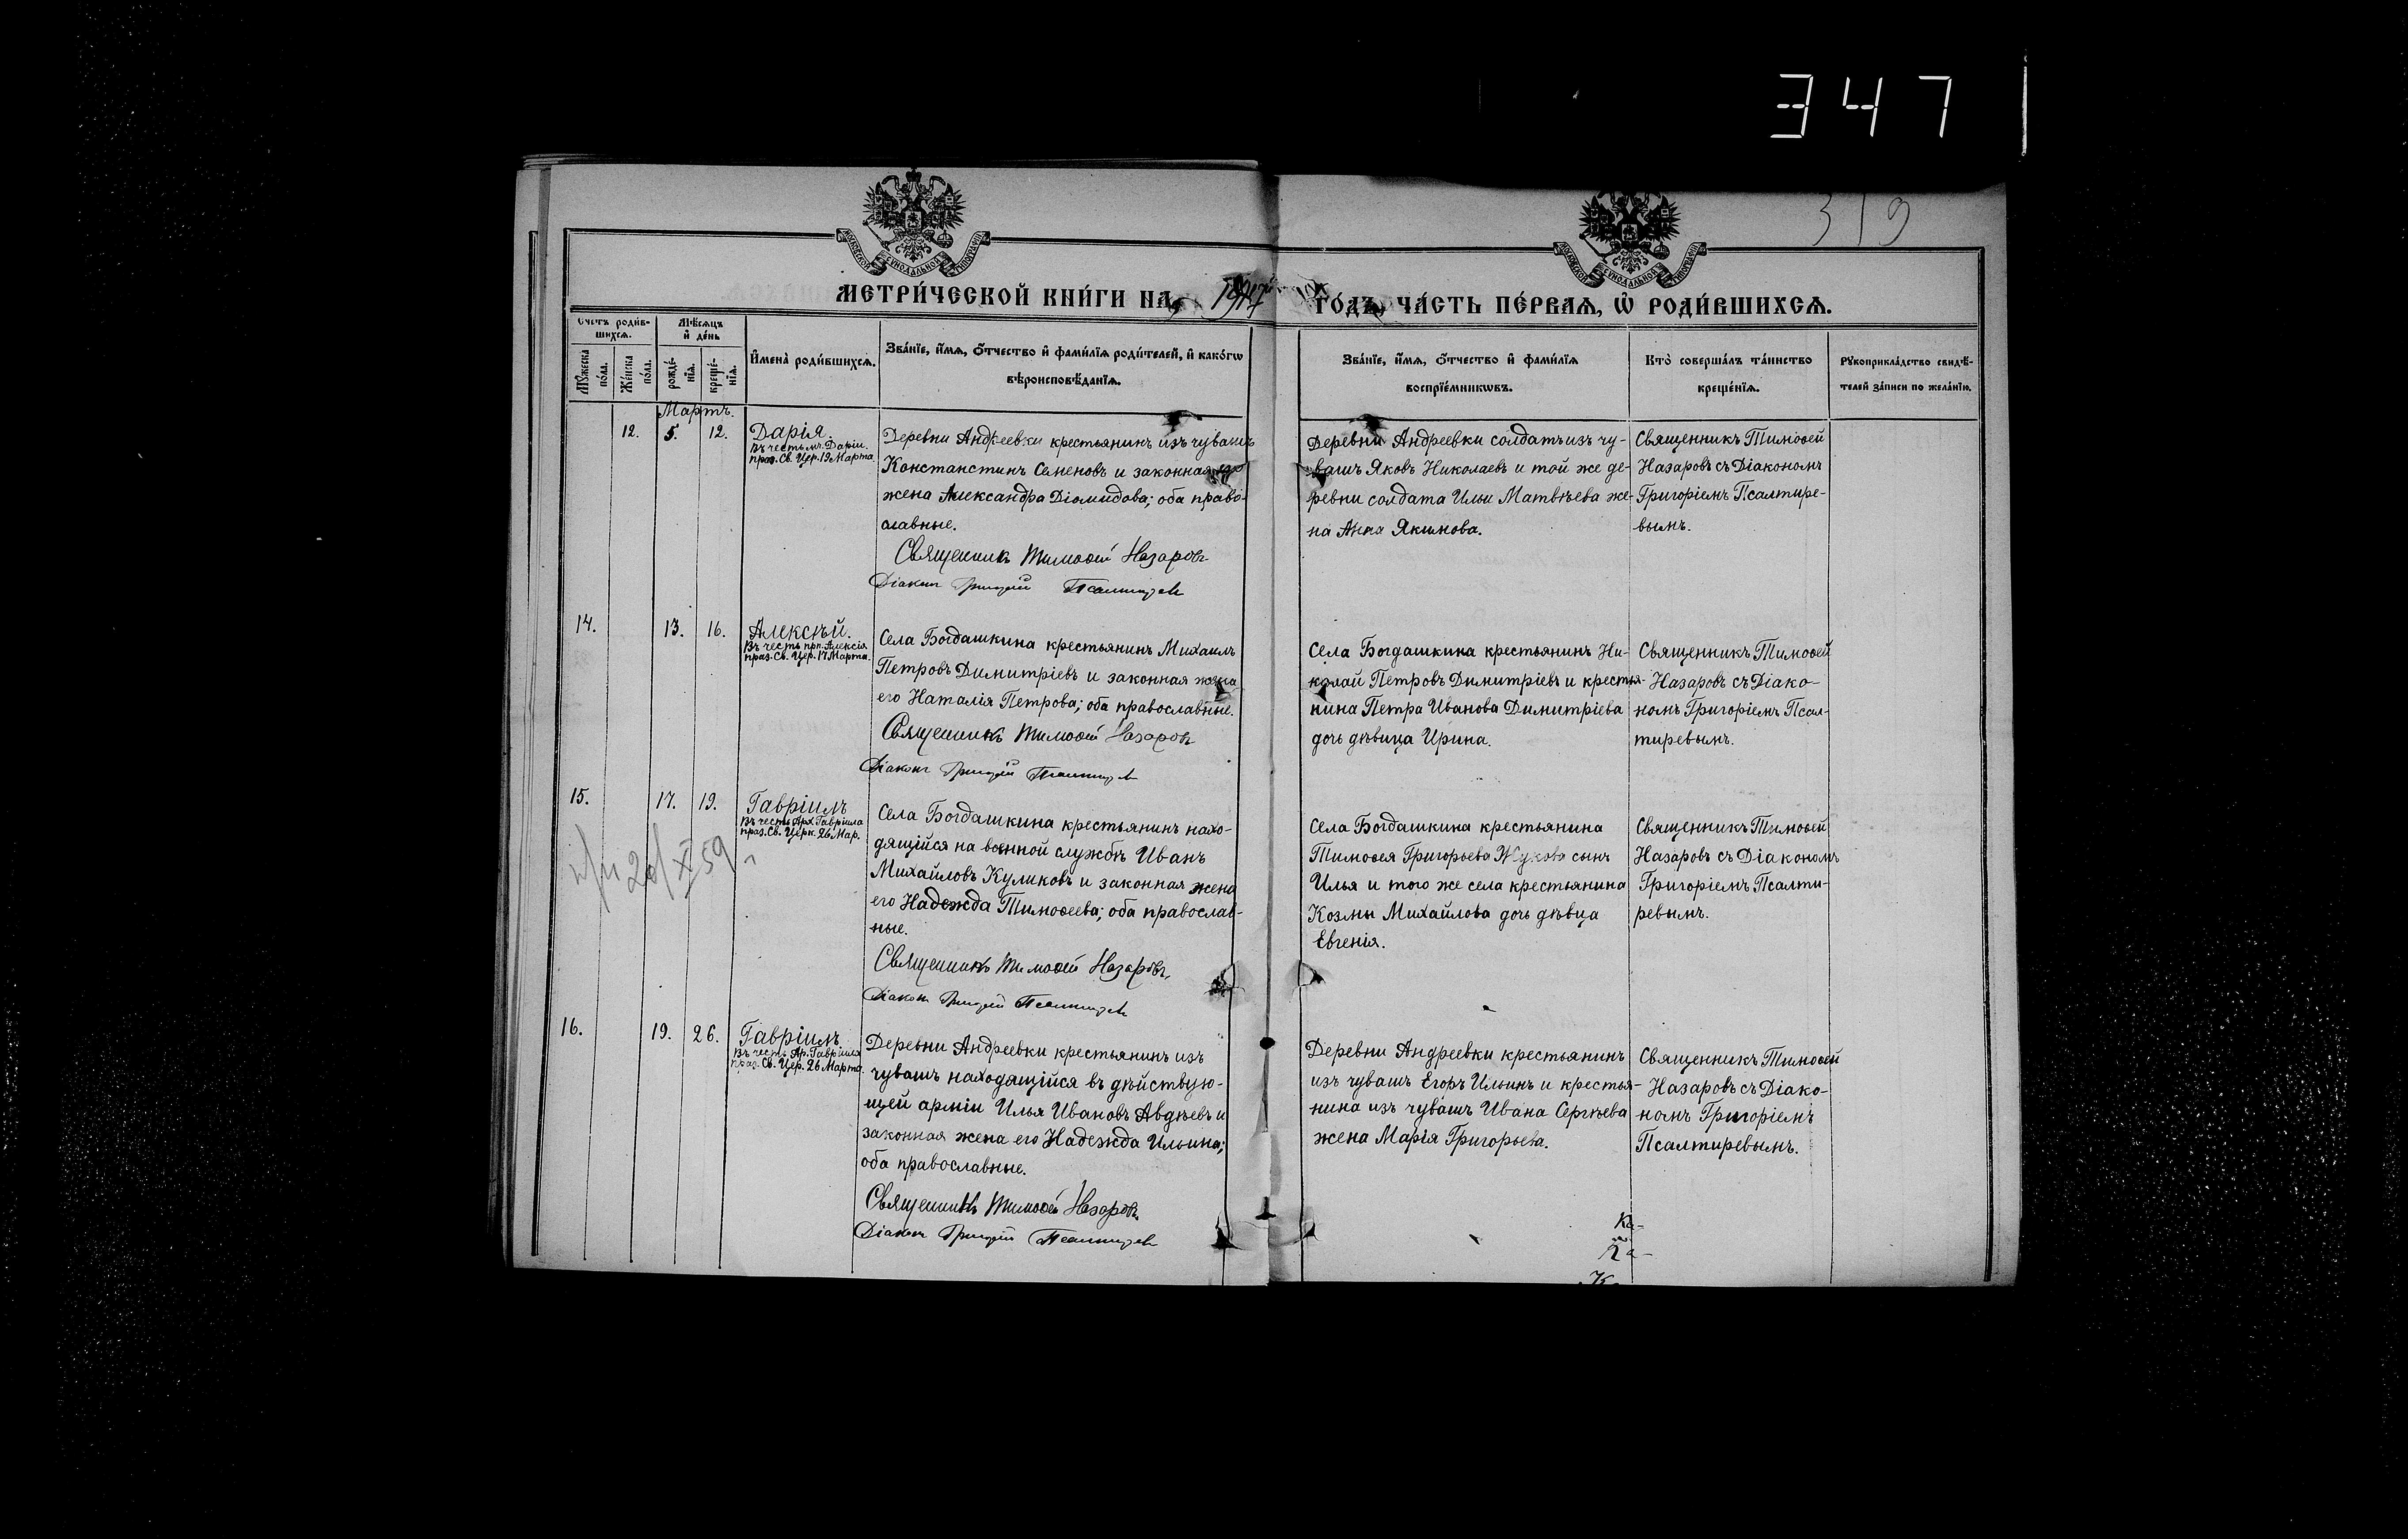 347
319
МОСКОВСКОЙ СУНОДАЛЬНОЙ ТИПОГРАФІИ
МОСКОВСКОЙ СУНОДАЛЬНОЙ ТИПОГРАФІИ
МЕТРИ́ЧЕСКОЙ КНИ́ГИ НА 1917 ГО́ДЪ, ЧА́СТЬ ПЕ́РВАѦ, Ѡ РОДИ́ВШИХСѦ.
Счетъ роди́в-
шихсѧ.
Мꙋ́жеска
по́ла.
Же́нска
по́ла.
Мѣ́сѧцъ
и҆ де́нь
рожде́-
нїѧ.
креще́-
нїѧ.
И҆мена̀ роди́вшихсѧ.
Зва́нїе, и҆́мѧ, ѻ҆́тчество и҆ фами́лїѧ роди́телей, и҆ како́гѡ
вѣроисповѣ́данїѧ.
Зва́нїе, и҆́мѧ, ѻ҆́тчество и҆ фами́лїѧ
воспрїе́мникѡвъ.
Кто̀ соверша́лъ та́инство
креще́нїѧ.
Рꙋкоприкла́дство свидѣ́-
телей за́писи по жела́нїю.
Мартъ.
12.
5.
12.
Дарія.
Въ честь мч. Даріи
праз. Св. Цер. 19 Марта.
Деревни Андреевки крестьянинъ изъ чувашъ
Констанстинъ Семеновъ и законная его
жена Александра Діомидова; оба право-
славные.
Священникъ Тимоѳей Назаровъ
Діаконъ Григорій Псалтиревъ
Деревни Андреевки солдатъ изъ чу-
вашъ Яковъ Николаевъ и той же де-
ревни солдата Ильи Матвѣева же-
на Анна Якимова.
Священникъ Тимоѳей
Назаровъ съ Діакономъ
Григоріемъ Псалтире-
вымъ.
14.
13.
16.
Алексѣй.
Въ честь прп. Алексія
праз. Св. Цер. 17 Марта.
Села Богдашкина крестьянинъ Михаилъ
Петровъ Димитріевъ и законная жена
его Наталія Петрова; оба православные.
Священникъ Тимоѳей Назаровъ
Діаконъ Григорій Псалтиревъ
Села Богдашкина крестьянинъ Ни-
колай Петровъ Димитріевъ и крестья-
нина Петра Иванова Димитріева
дочь дѣвица Ирина.
Священникъ Тимоѳей
Назаровъ съ Діако-
номъ Григоріемъ Псал-
тиревымъ.
15.
17.
19.
Гавріилъ
Въ честь Арх. Гавріила
праз. Св. Церк. 26 Мар.
Села Богдашкина крестьянинъ нахо-
дящійся на военной службѣ Иванъ
Михайловъ Куликовъ и законная жена
его Надежда Тимоѳеева; оба православ-
ные.
Священникъ Тимоѳей Назаровъ,
Діаконъ Григорій Псалтиревъ
Села Богдашкина крестьянина
Тимоѳея Григорьева Жукова сынъ
Илья и того же села крестьянина
Козмы Михайлова дочь дѣвица
Евгенія.
Священникъ Тимоѳей
Назаровъ съ Діакономъ
Григоріемъ Псалти-
ревымъ.
20/XI 59
16.
19.
26.
Гавріилъ
Въ честь Ар. Гавріила
праз. Св. Цер. 26 Марта.
Деревни Андреевки крестьянинъ изъ
чувашъ находящійся въ дѣйствую-
щей арміи Илья Ивановъ Авдѣевъ и
законная жена его Надежда Ильина;
оба православные.
Священникъ Тимоѳей Назаровъ
Діаконъ Григорій Псалтиревъ
Деревни Андреевки крестьянинъ
изъ чувашъ Егоръ Ильинъ и крестья-
нина изъ чувашъ Ивана Сергѣева
жена Марія Григорьева.
Священникъ Тимоѳей
Назаровъ съ Діако-
номъ Григоріемъ
Псалтиревымъ.
Ка-